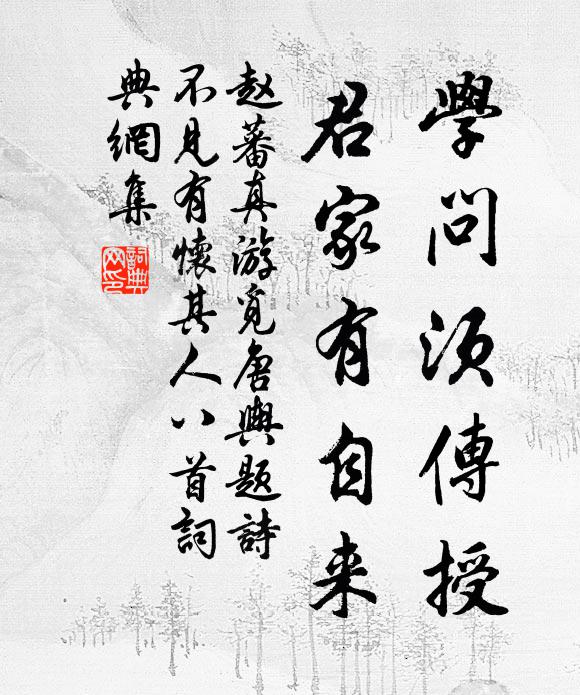 學問須傳授
君家有自来
赵蕃真游觅唐舆题詩
不見有懷其人八首詞
典網集
詞典
网印